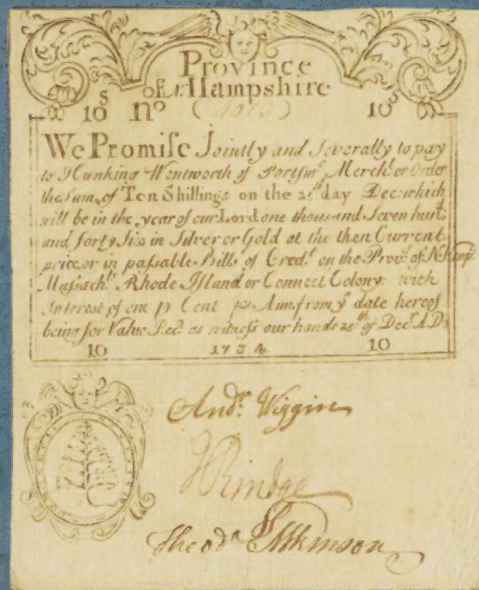 Province
of N: Hampshire
10ˢ Nº 10ˢ
We Promise Jointly and Severally to pay
to Hunking Wentworth of Portsmº Merchᵗ or Order
the Sum of Ten Shillings on the 25ᵗʰ day Decʳ: which
will be in the year of our Lord one thousand Seven hunᵈ
and forty Six in Silver or Gold at the then Current
price, or in passable Bills of Credᵗ on the Provᵉ of N:Hampʳ
Massachᵗˢ Rhode Island or Connect Colony: with
Interest of one pʳ Cent pʳ Ann: from yᵉ date hereof
being for Value Recᵈ as witness our hands 25ᵗʰ of Decʳ A D:
10 1734 10
Andʳ Wiggin
J Rindge
Theodʳ Atkinson